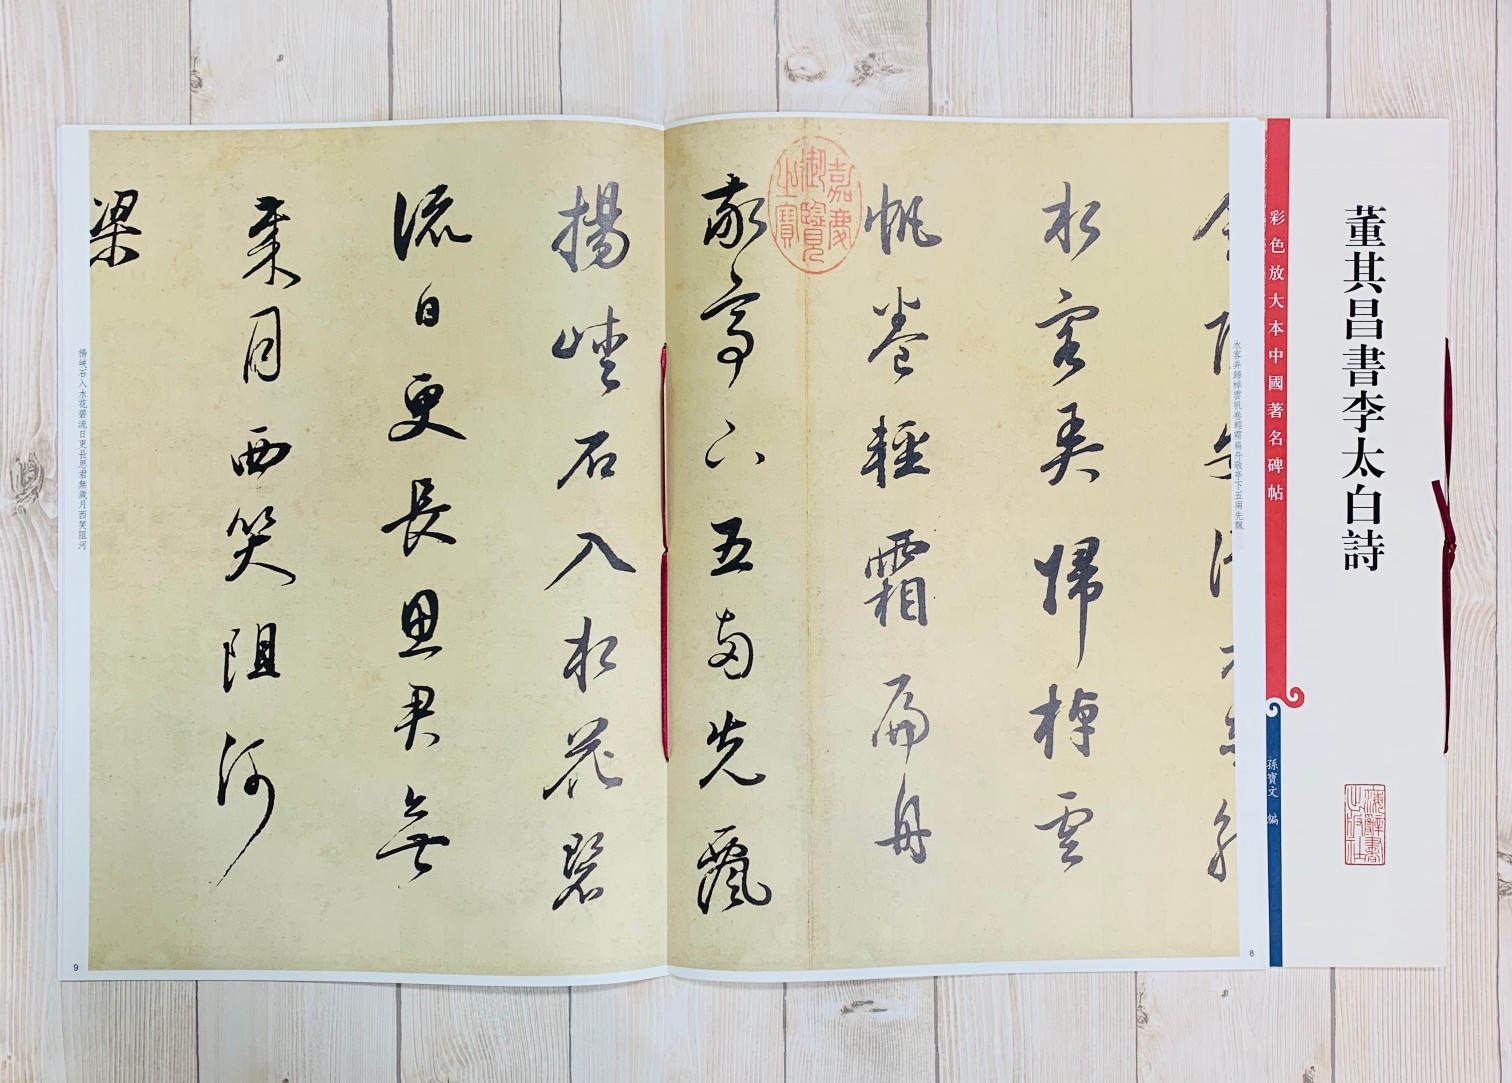 董其昌書李太白詩
彩色放大本中國著名碑帖
孫寶文 編
海辭書出版社
水客弄歸棹雲
帆卷輕霜扁舟
敬亭下五兩先飄
揚峽石入水花碧
流日更長思君無
歲月西笑阻河
梁
嘉慶御覽之寶
水客弄歸棹雲帆卷輕霜扁舟敬亭下五兩先飄
揚峽石入水花碧流日更長思君無歲月西笑阻河
8
9